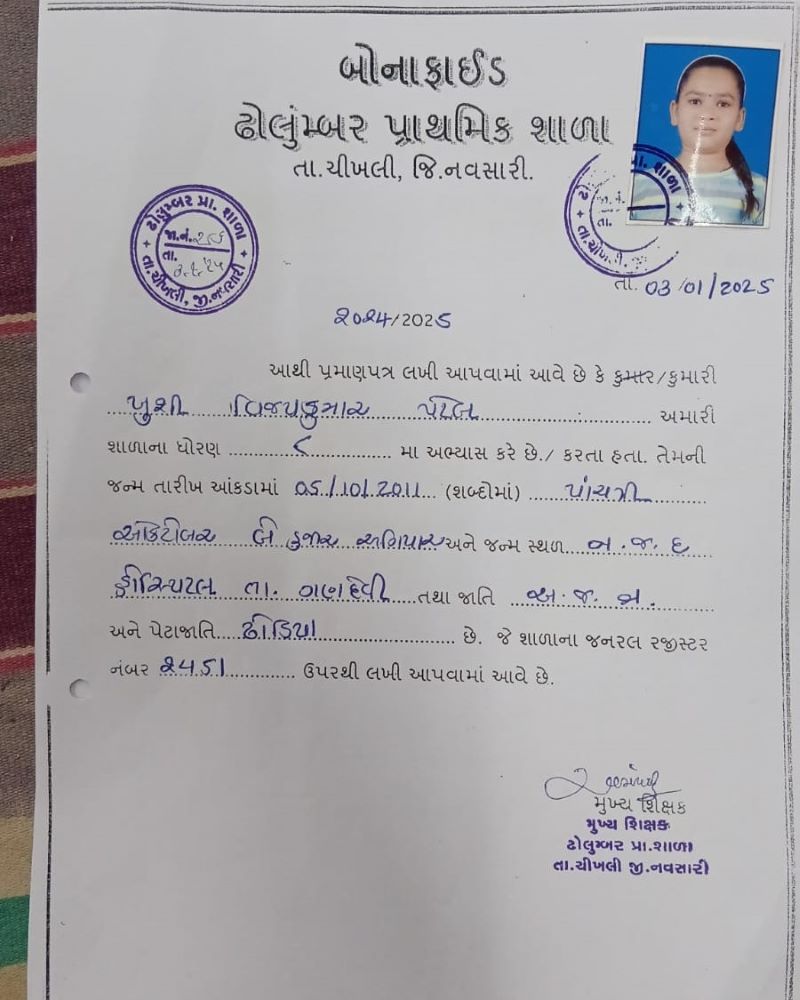 બોનાફાઈડ
ઢોલુંમ્બર પ્રાથમિક શાળા
તા.ચીખલી, જિ.નવસારી.
ઢોલુમ્બર પ્રા. શાળા
જા.નં.
તા.
તા.ચીખલી, જી.નવસારી
તા. 03/01/2025
૨૦૨૪/2025
આથી પ્રમાણપત્ર લખી આપવામાં આવે છે કે કુમાર/કુમારી
ખુશી વિજયકુમાર પટેલ અમારી
શાળાના ધોરણ ૮ મા અભ્યાસ કરે છે./ કરતા હતા. તેમની
જન્મ તારીખ આંકડામાં 05/10/2011 (શબ્દોમાં) પાંચમી
ઓકટોબર બે હજાર અગિયાર અને જન્મ સ્થળ
હોસ્પિટલ તા. ગણદેવી તથા જાતિ અ.જ.જા.
અને પેટાજાતિ ઢોડિયા છે. જે શાળાના જનરલ રજીસ્ટર
નંબર ૨૪51 ઉપરથી લખી આપવામાં આવે છે.
મુખ્ય શિક્ષક
મુખ્ય શિક્ષક
ઢોલુમ્બર પ્રા.શાળા
તા.ચીખલી જી.નવસારી